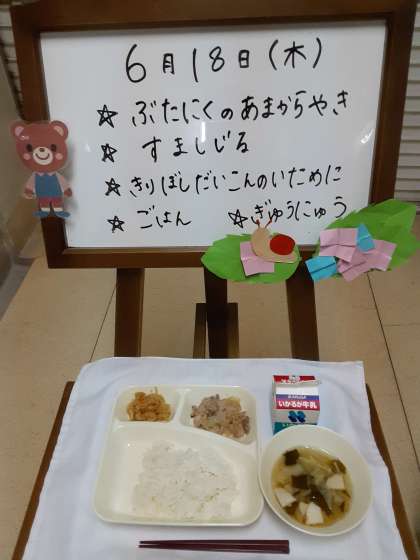 6月18日(木)
☆ ぶたにくのあまからやき
☆ すましじる
☆ きりぼしだいこんのいために
☆ ごはん ☆ ぎゅうにゅう
いかるが牛乳